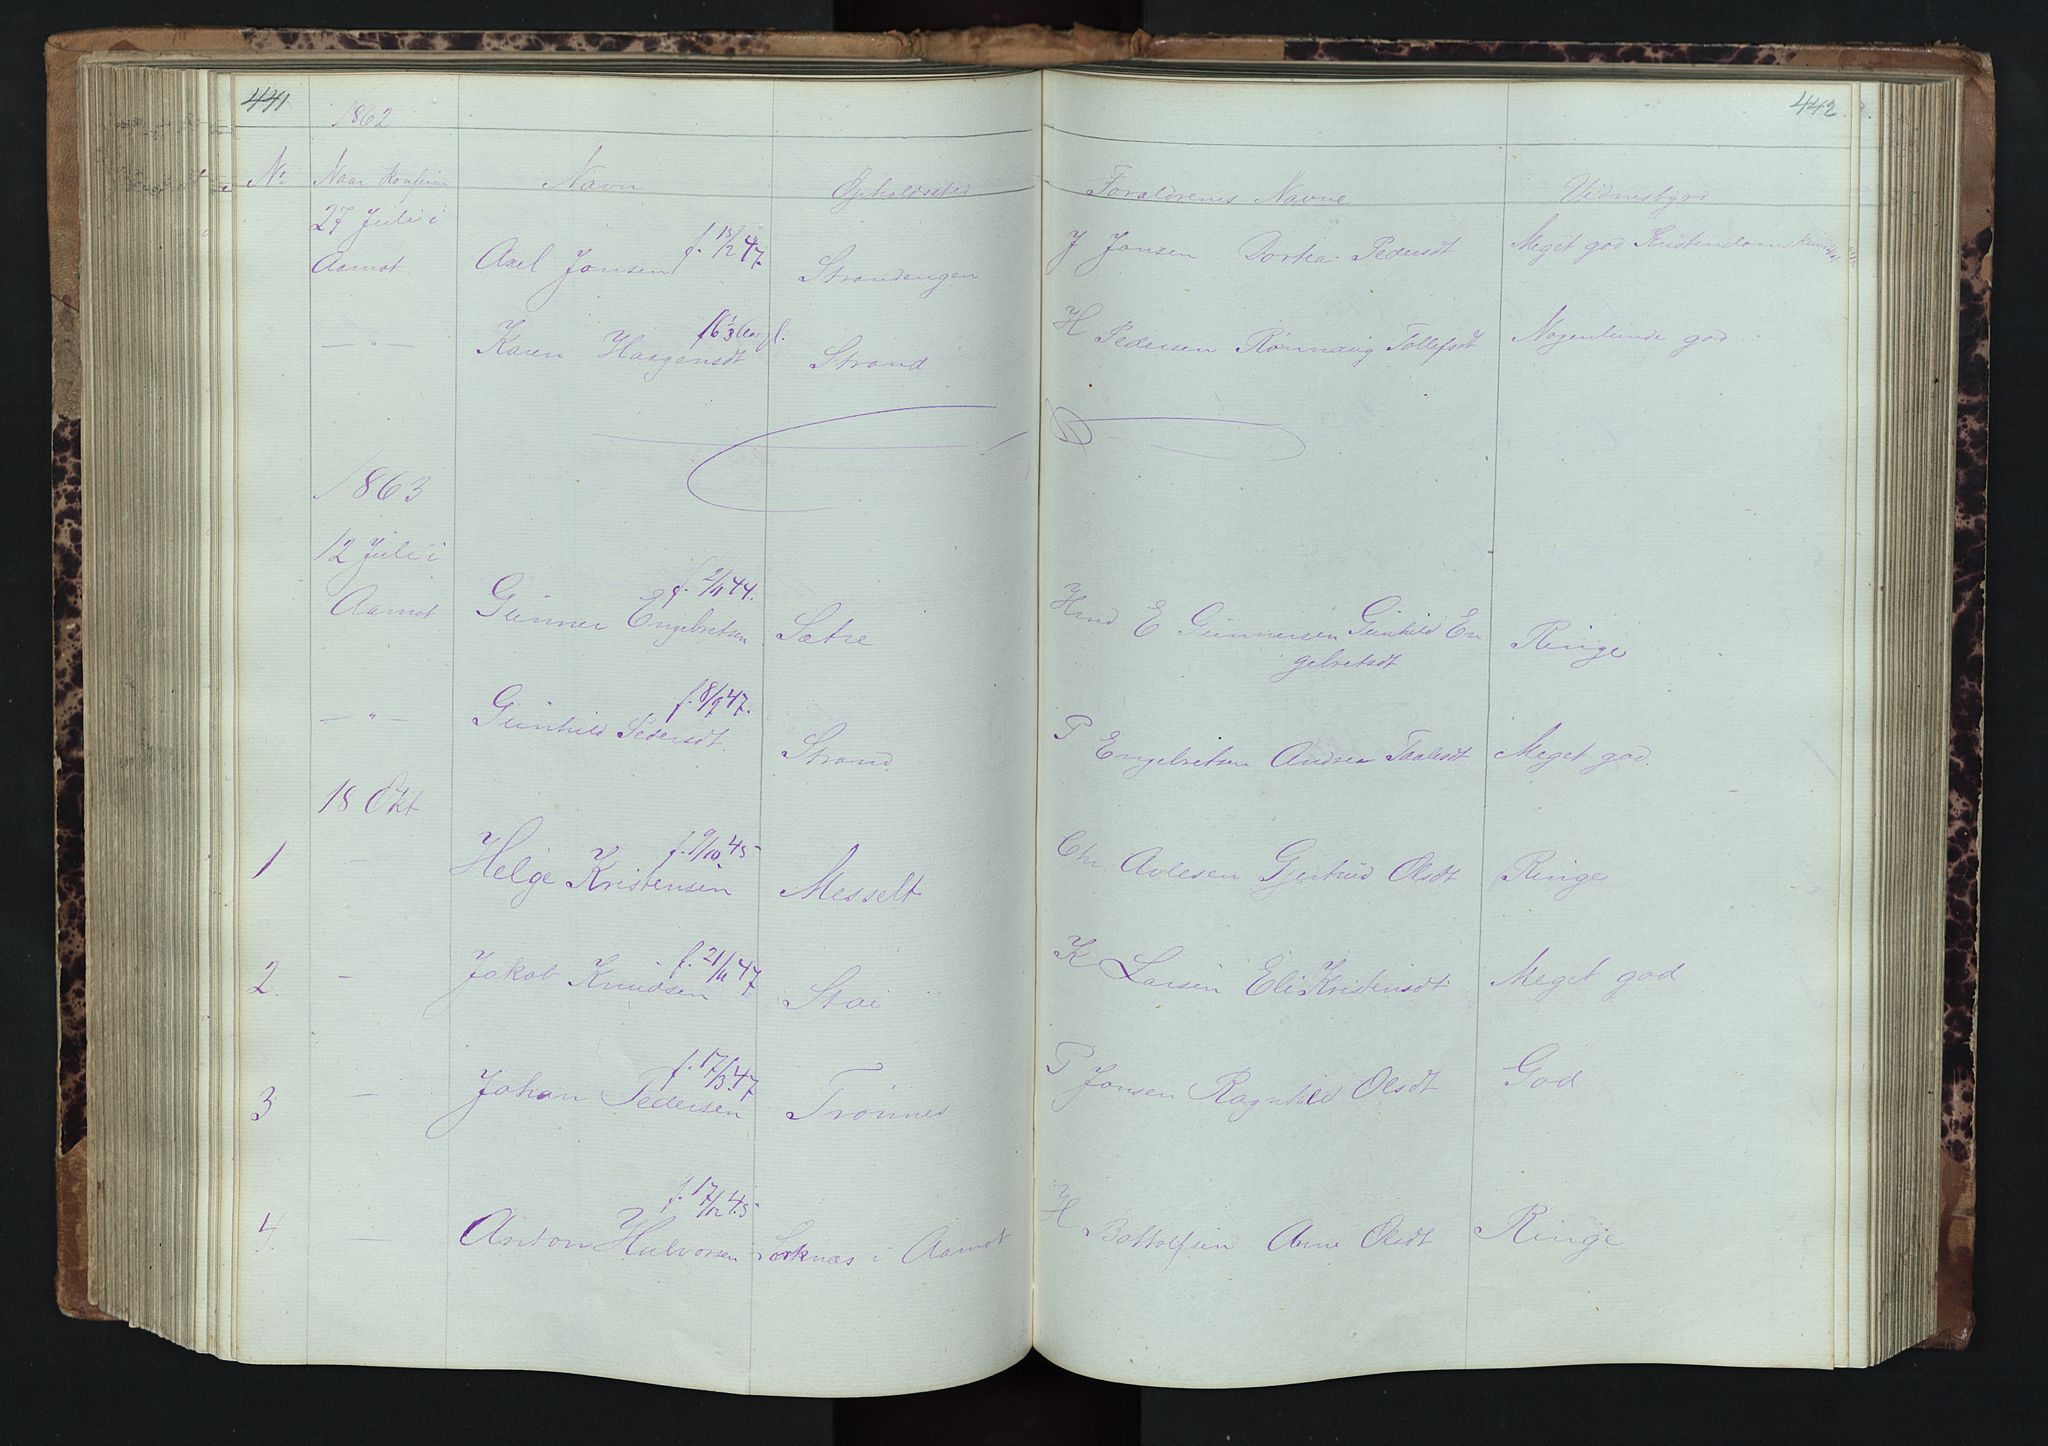 441
1862
No Naar Konfirm Navn Opholdssted
27 Julii i
Aamot Axel Jonsen f. 13/2 47. Strandengen
— " — Karen Haagensdt 16 1/3 Aar gl. Strand
1863
12 Julii i
Aamot Gunner Engebretsen f. 2/11 44. Sætre
— " — Gunhild Pedersdt. f. 8/9 47. Strand
18 Okt
1 — Helge Kristensen f. 9/10 45 Messelt
2. — Jakob Knudsen f. 21/11 47 Stai
3 — Johan Pedersen f. 17/3 47 Trønnes
4. — Anton Halvorsen f. 17/12 45 Sorknæs i Aamot
442
Forældrenes Navne Vidnesbyrd
J Jonsen Dortea Pedersdt Meget god Kristendoms
H Pedersen Rønnaug Tollefsdt Nogenlunde god
E Gunnersen Gunhild En
gebretsdt Ringe
P Engebretsen Andrea Paalsdt Meget god.
Chr Avlesen Gjertrud Olsdt Ringe
K Larsen Eli Kristensdt Meget god
P Jonsen Ragnhild Olsdt God
H Bottolfsen Anne Olsdt Ringe